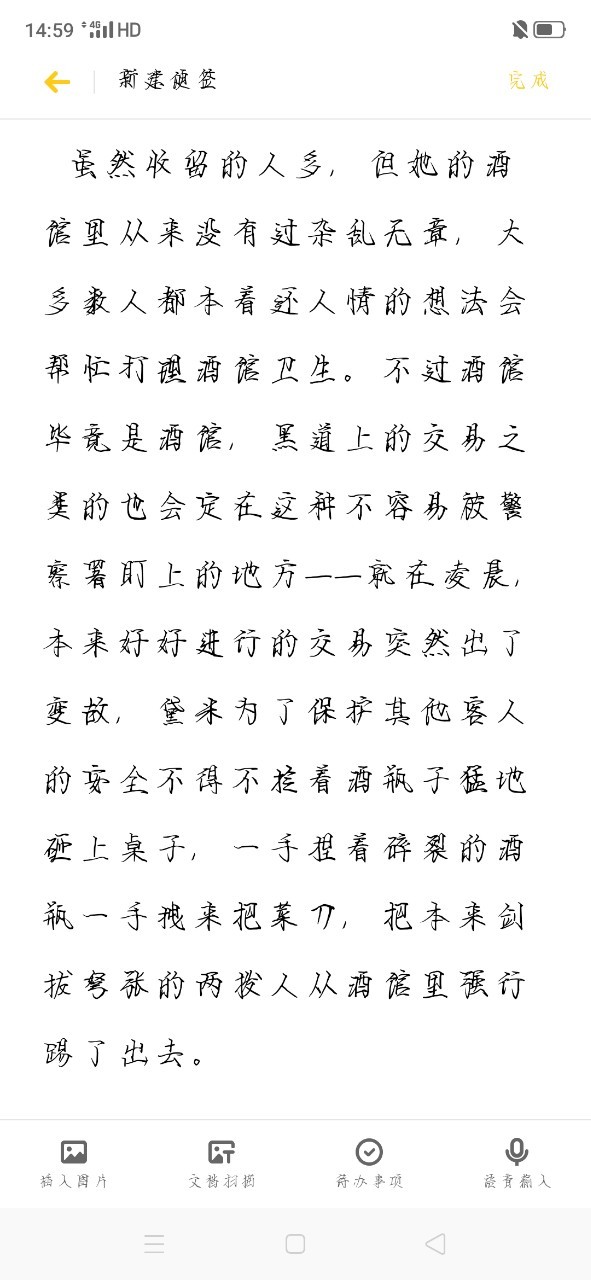 14:59 4G HD
新建便签
完成
虽然收留的人多，但她的酒
馆里从来没有过杂乱无章，大
多数人都本着还人情的想法会
帮忙打理酒馆卫生。不过酒馆
毕竟是酒馆，黑道上的交易之
类的也会定在这种不容易被警
察署盯上的地方——就在凌晨，
本来好好进行的交易突然出了
变故，黛米为了保护其他客人
的安全不得不拎着酒瓶子猛地
砸上桌子，一手捏着碎裂的酒
瓶一手拽来把菜刀，把本来剑
拔弩张的两拨人从酒馆里强行
踢了出去。
插入图片
文档扫描
待办事项
语音输入